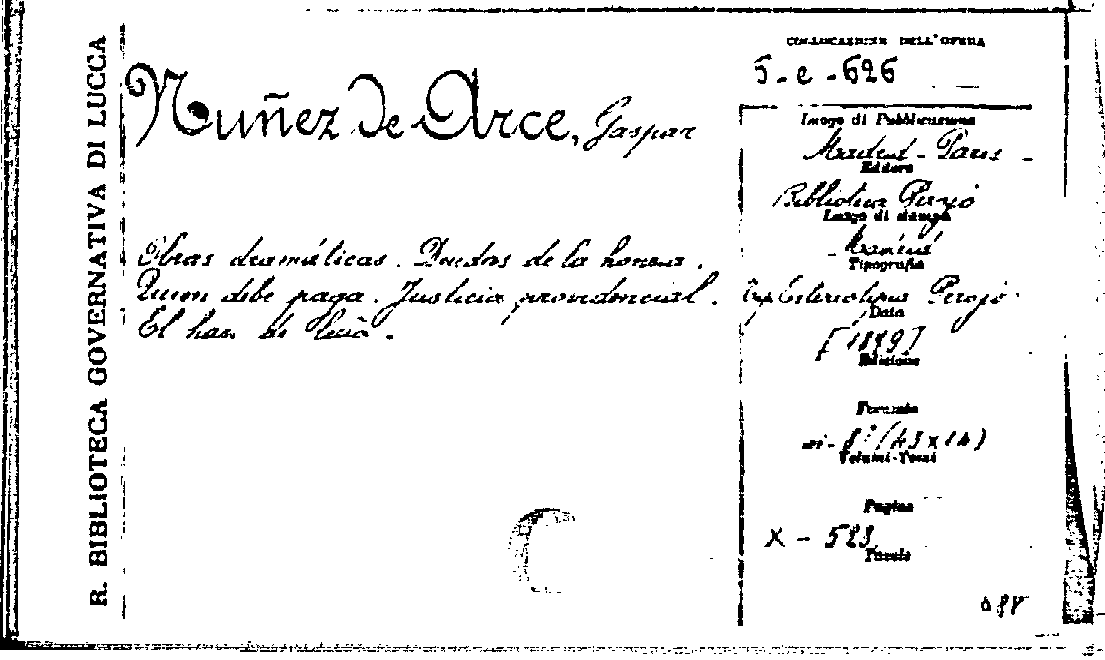 R. BIBLIOTECA GOVERNATIVA DI LUCCA
Nuñez de Arce, Gaspar
Obras dramáticas. Deudas de la honra.
Quien debe paga. Justicia providencial.
El haz de leña.
COLLOCAZIONE DELL'OPERA
5-e-626
Luogo di Pubblicazione
Madrid - Paris
Editore
Biblioteca Perojo
Luogo di stampa
Madrid
Tipografia
Estereotipia Perojo
Data
[1879]
Edizione
Formato
in-8°
Volumi-Tomi
Pagine
X - 523
Tavole